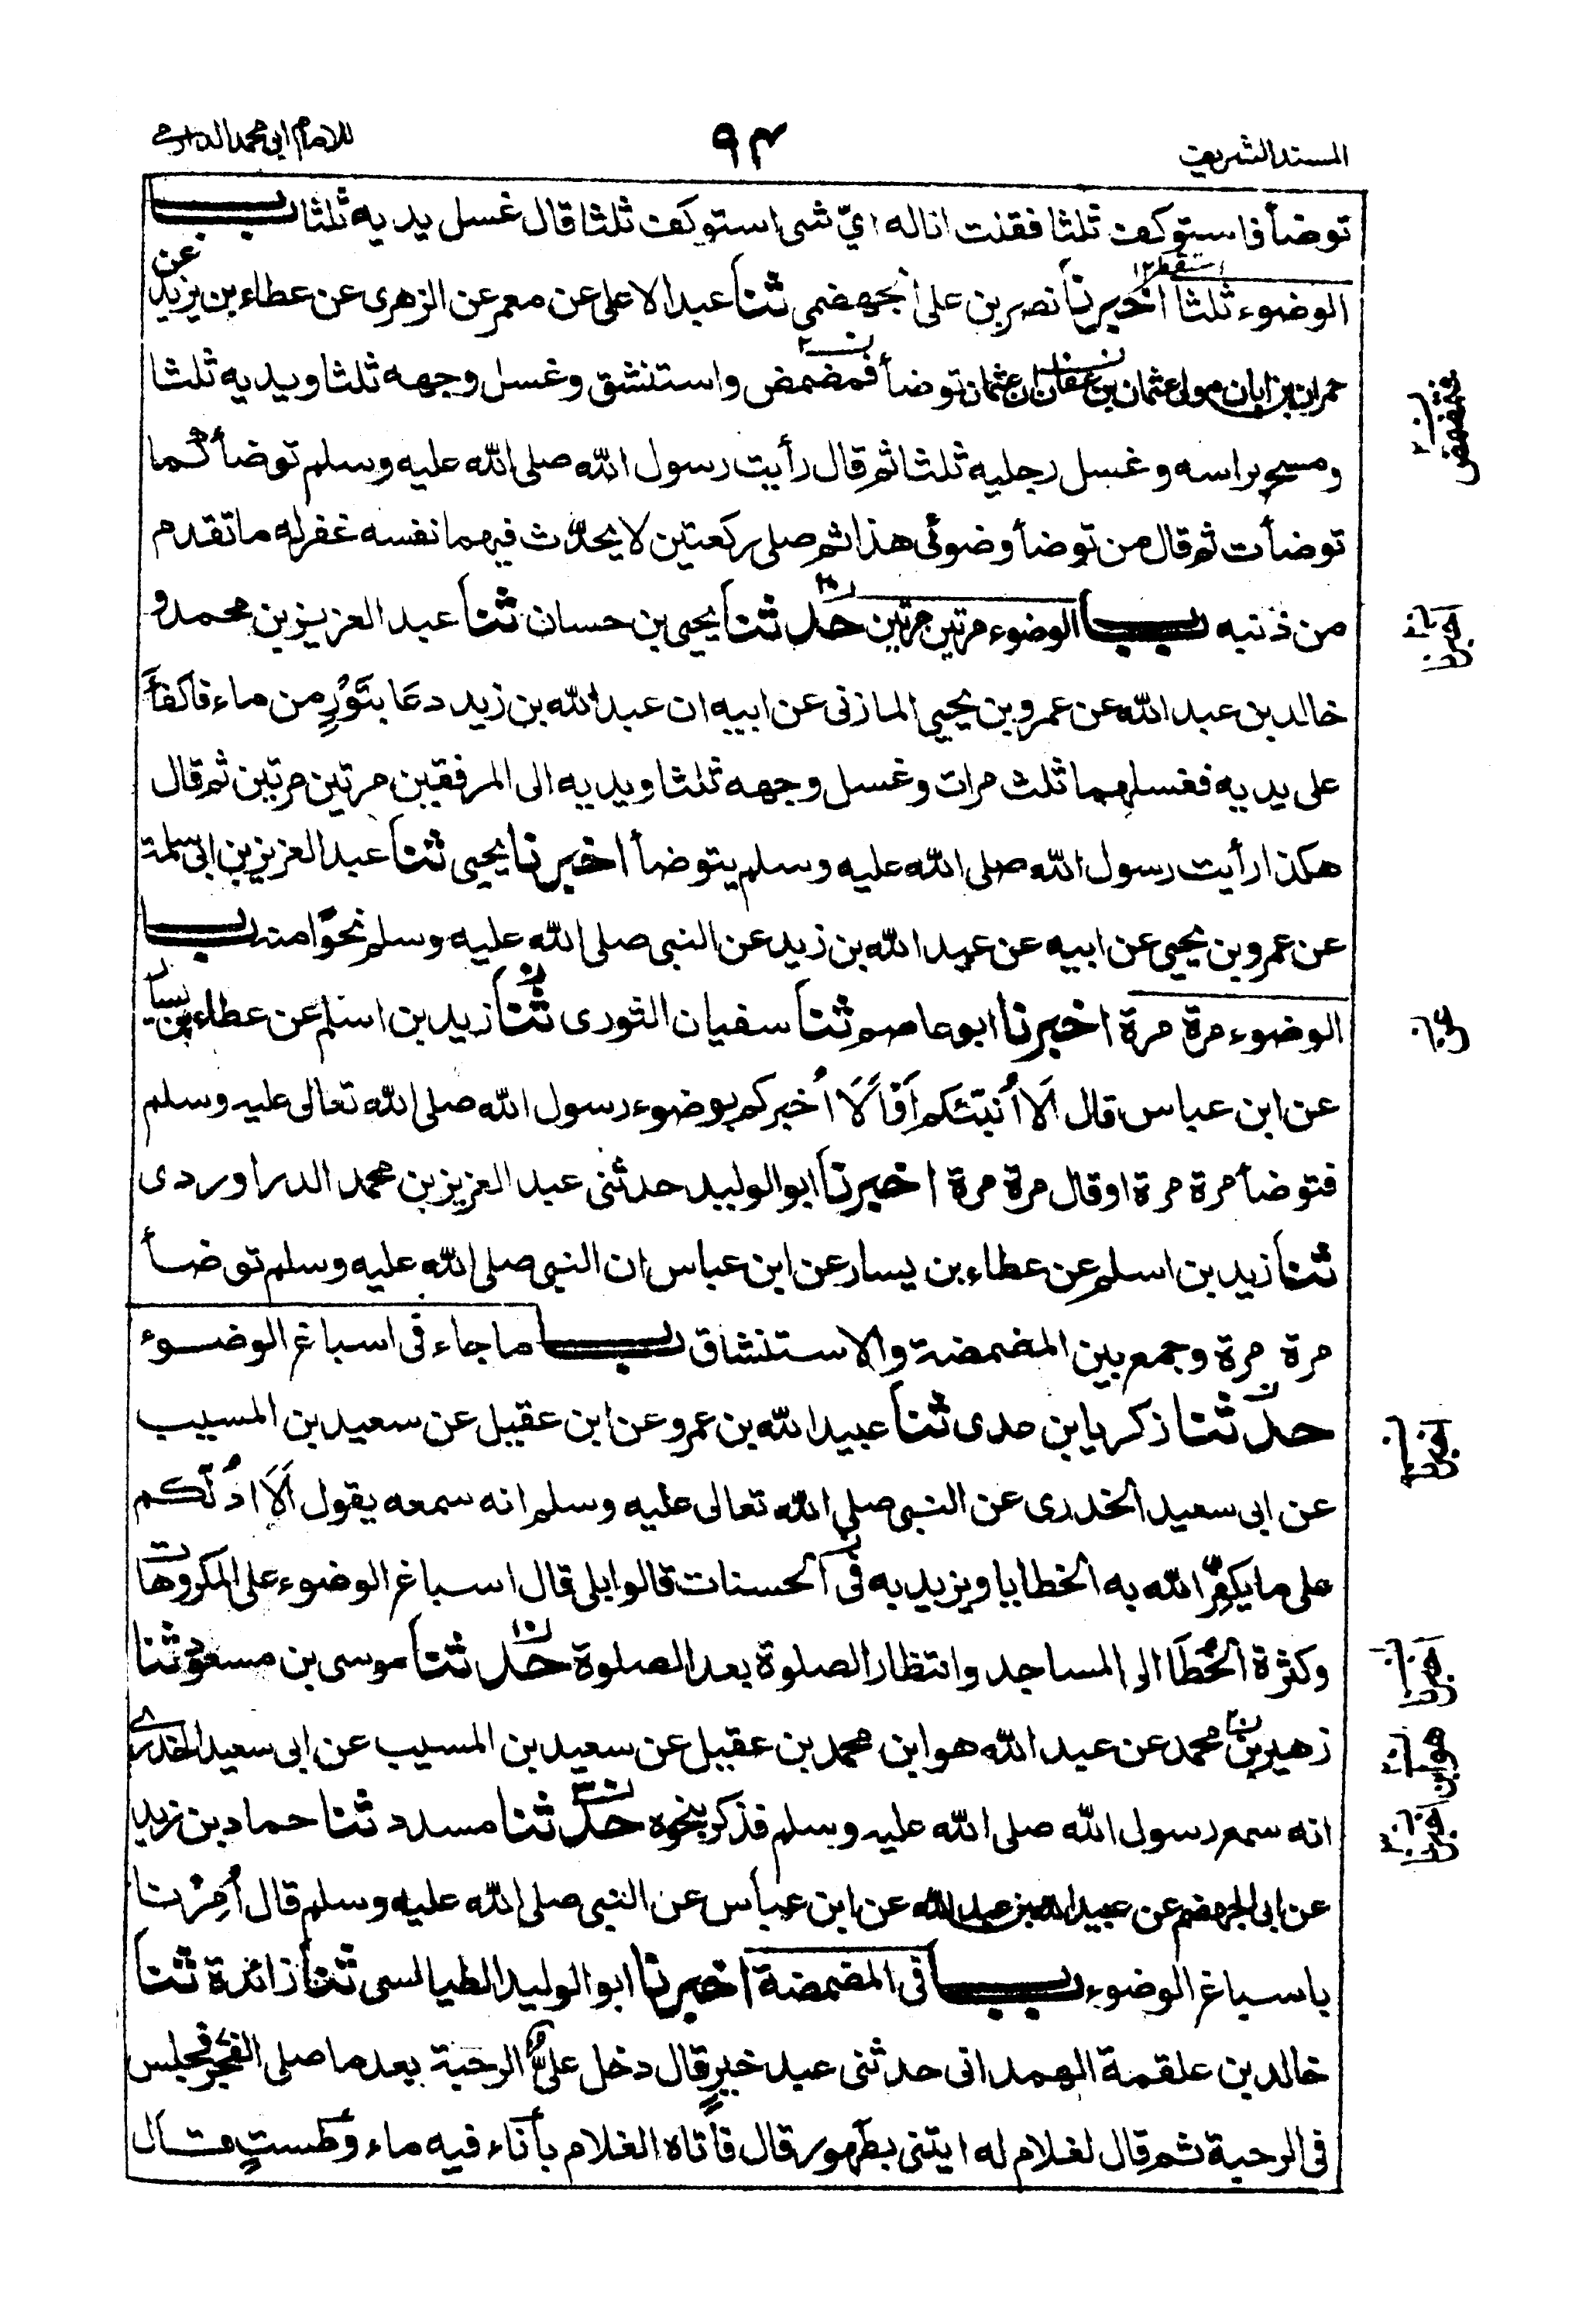 المسند الشريف
٩٣
للامام ابي محمد الدارمي
توضأ فاستوكف ثلثا فقلت انا له ايّ شى استوكف ثلثا قال غسل يديه ثلثا باب
الوضوء ثلثا اخبرنا نصر بن على الجهضمى ثنا عبد الاعلى عن معمر عن الزهرى عن عطاء بن يزيد عن
حمران بن ابان مولى عثمان بن عفان ان عثمان توضأ فمضمض واستنشق وغسل وجهه ثلثا ويديه ثلثا
ومسح براسه وغسل رجليه ثلثا ثم قال رأيت رسول الله صلى الله عليه وسلم توضأ كما
توضأت ثم قال من توضأ وضوئى هذا ثم صلى ركعتين لا يحدّث فيهما نفسه غفر له ما تقدم
من ذنبه باب الوضوء مرتين مرتين حدثنا يحيى بن حسان ثنا عبد العزيز بن محمد و
خالد بن عبد الله عن عمرو بن يحيى المازنى عن ابيه ان عبد الله بن زيد دعَا بتَوْرٍ من ماء فاكفأَ
على يديه فغسلهما ثلث مرات وغسل وجهه ثلثا ويديه الى المرفقين مرتين مرتين ثم قال
هكذا رأيت رسول الله صلى الله عليه وسلم يتوضأ اخبرنا يحيى ثنا عبد العزيز بن ابى سلمة
عن عمرو بن يحيى عن ابيه عن عبد الله بن زيد عن النبى صلى الله عليه وسلم نحوًا منه باب
الوضوء مرة مرة اخبرنا ابو عاصم ثنا سفيان الثورى ثنا زيد بن اسلم عن عطاء بن يسار
عن ابن عباس قال اَلَا اُنبّئكم اَوْ اَلَا اُخبركم بوضوء رسول الله صلى الله تعالى عليه وسلم
فتوضأ مرة مرة او قال مرة مرة اخبرنا ابو الوليد حدثنى عبد العزيز بن محمد الدراوردى
ثنا زيد بن اسلم عن عطاء بن يسار عن ابن عباس ان النبى صلى الله عليه وسلم توضأ
مرة مرة وجمع بين المضمضة والاستنشاق باب ما جاء فى اسباغ الوضوء
حدّثنا زكريا بن عدى ثنا عبيد الله بن عمرو عن ابن عقيل عن سعيد بن المسيب
عن ابى سعيد الخدرى عن النبى صلى الله تعالى عليه وسلم انه سمعه يقول اَلَا ادُلّكم
على ما يكفّر الله به الخطايا ويزيد به فى الحسنات قالوا بلى قال اسباغ الوضوء على المكروهات
وكثرة الخُطَا الى المساجد وانتظار الصلوة بعد الصلوة حدثنا موسى بن مسعود ثنا
زهير بن محمد عن عبد الله هو ابن محمد بن عقيل عن سعيد بن المسيب عن ابى سعيد الخدرى
انه سمع رسول الله صلى الله عليه وسلم فذكر بنحوه حدّثنا مسدد ثنا حماد بن زيد
عن ابى الجهضم عن عبيد الله بن عبد الله عن ابن عباس عن النبى صلى الله عليه وسلم قال اُمِرْنا
باسباغ الوضوء باب فى المضمضة اخبرنا ابو الوليد الطيالسى ثنا زائدة ثنا
خالد بن علقمة الهمدانى حدثنى عبد خيرٍ قال دخل علىٌّ الرحبة بعد ما صلى الفجر فجلس
فى الرحبة ثم قال لغلام له ايتنى بطَهور قال فاَتاه الغلام بأناء فيه ماء وطستٍ قال